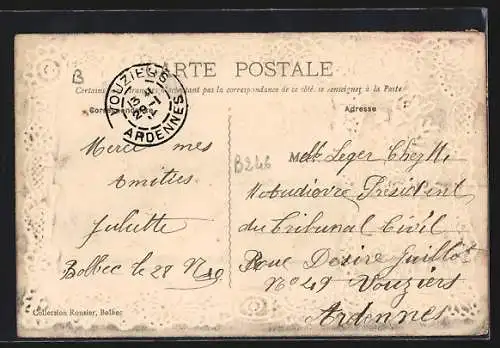 B
CARTE POSTALE
Certains pays étrangers n'acceptant pas la correspondance de ce côté, se renseigner à la Poste
Correspondance
Adresse
VOUZIERS
13
29-1
12
ARDENNES
Merci mes
Amitiés
Juliette
Bolbec le 28
B246
Melle Leger Chez M.
Président
du Tribunal Civil
Rue Desire Guillot
No 49 Vouziers
Ardennes
Collection Ronsier, Bolbec